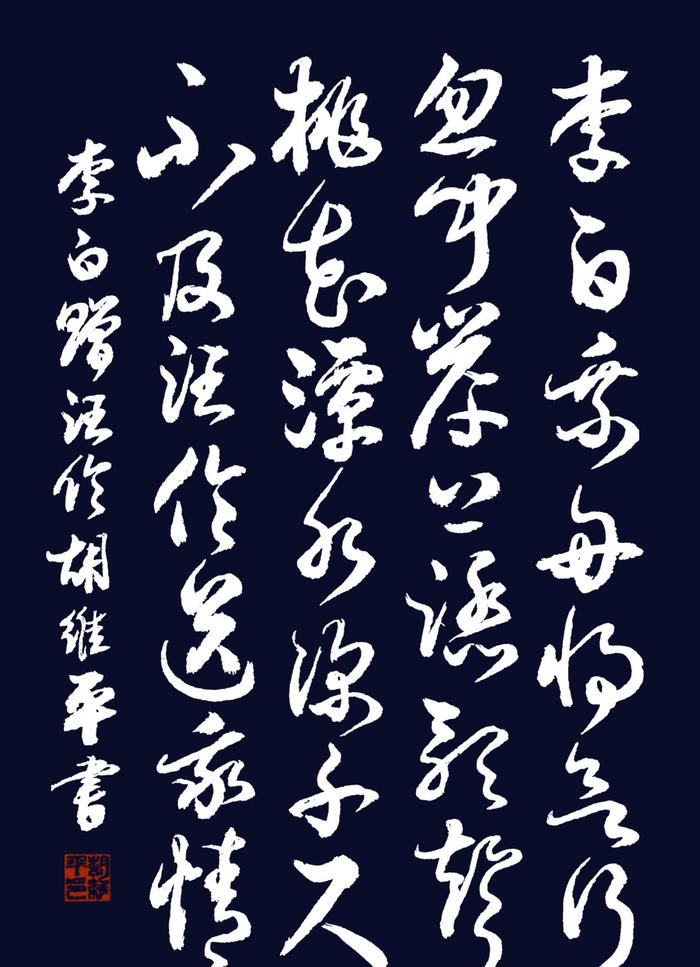 李白乘舟將欲行
忽聞岸上踏歌聲
桃花潭水深千尺
不及汪倫送我情
李白贈汪倫胡維平書
胡維平印